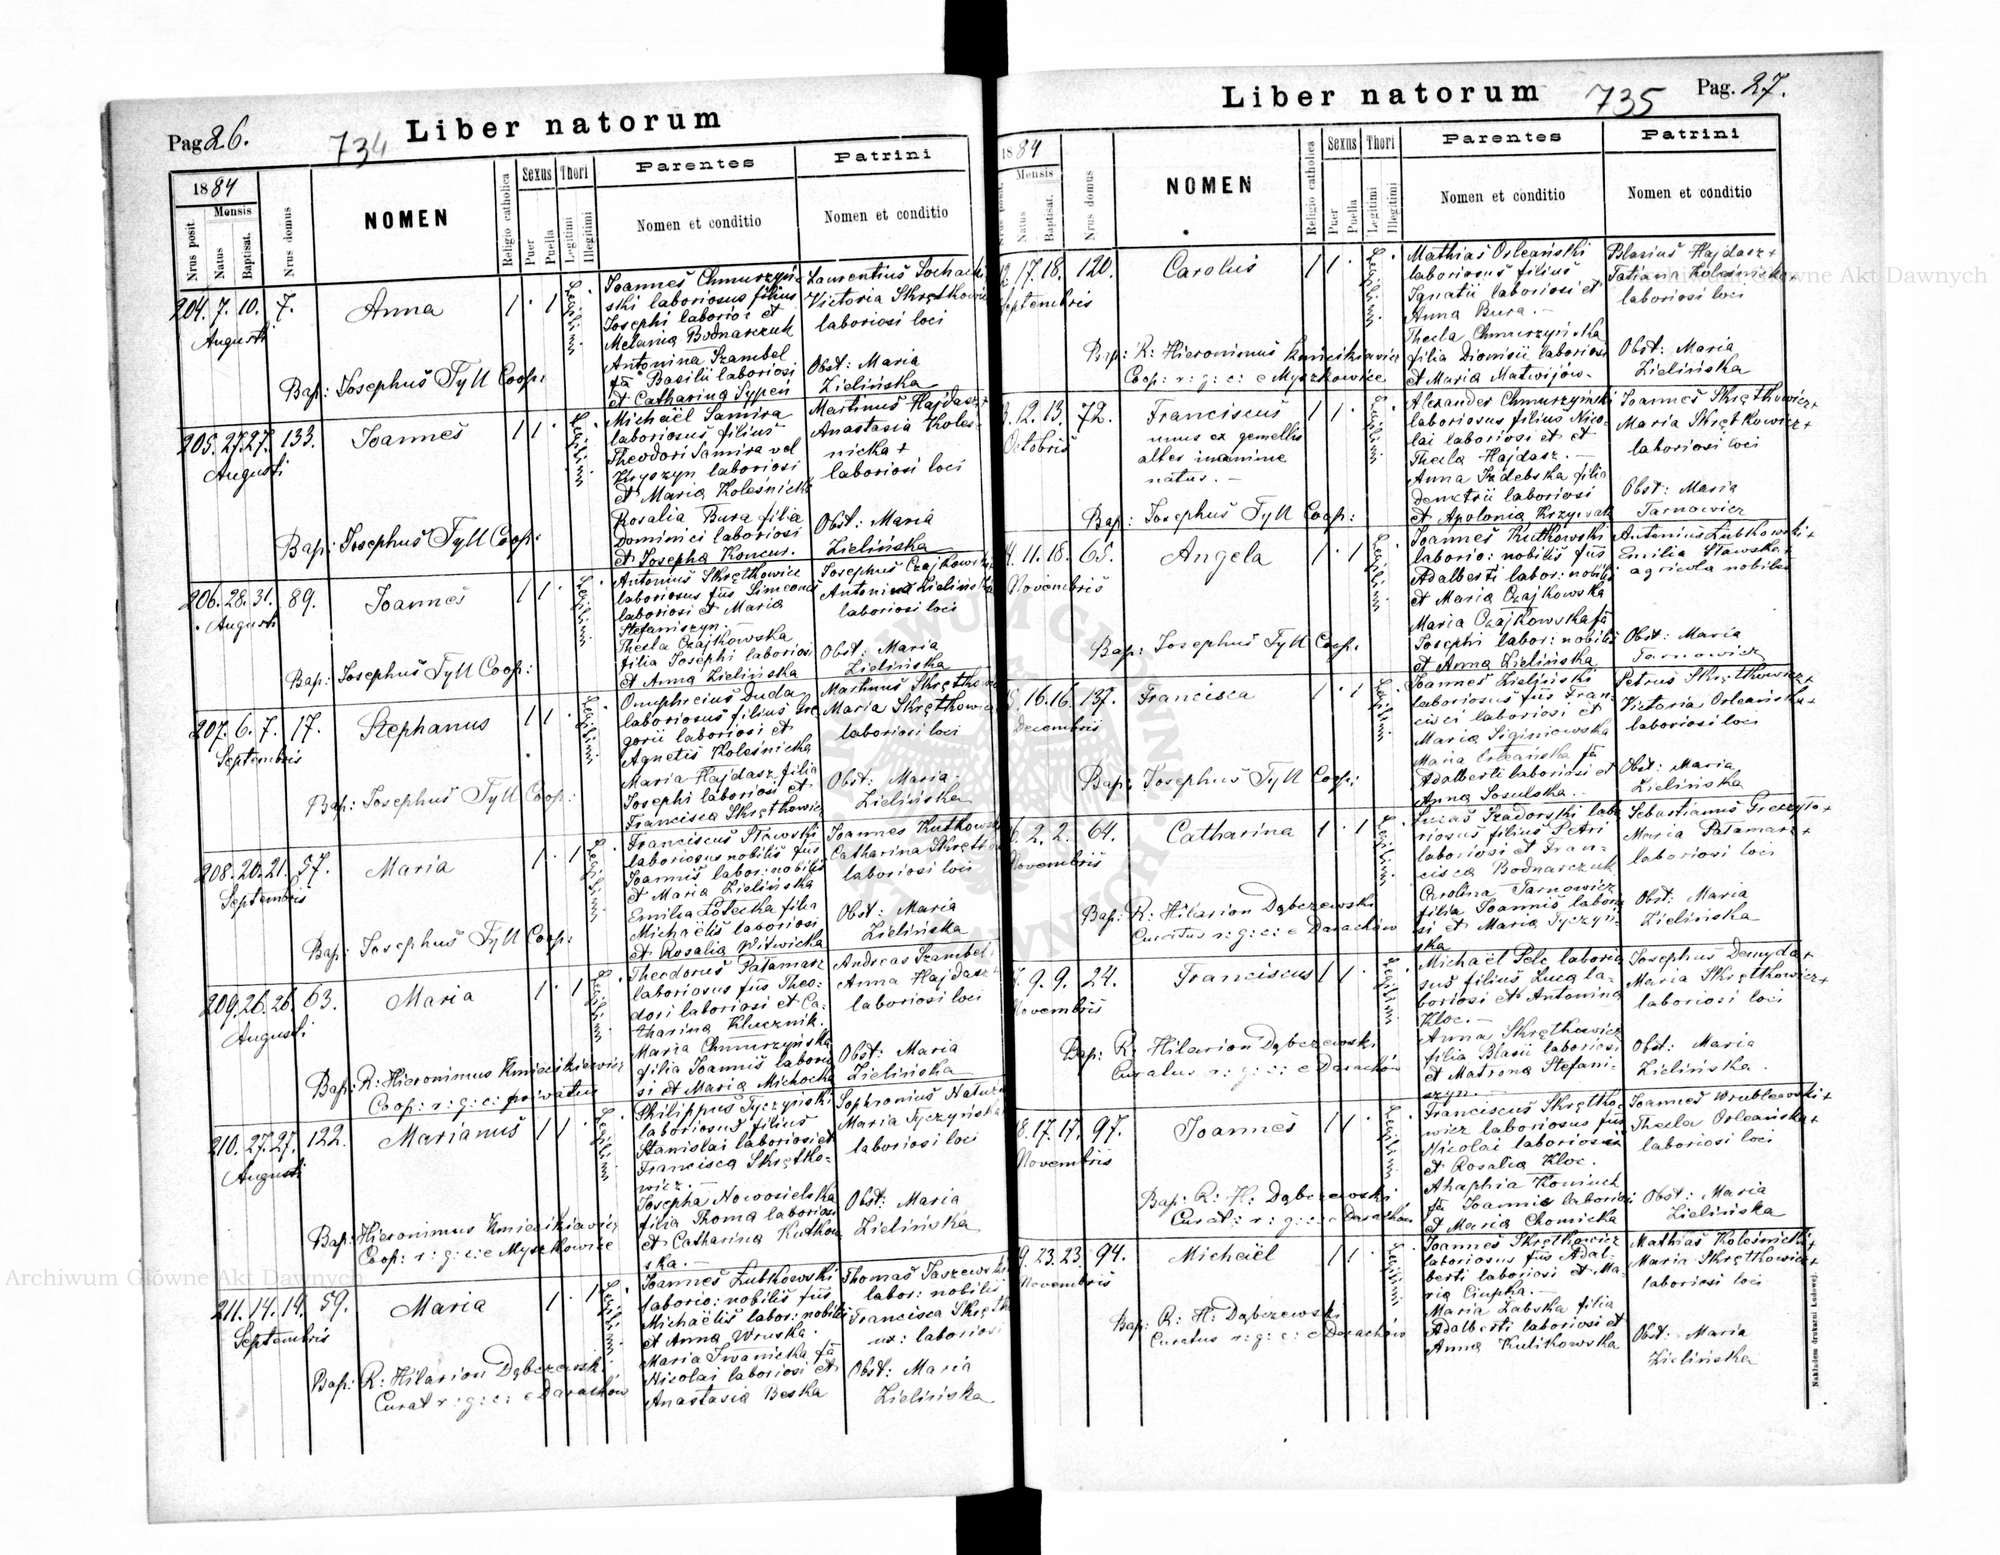 Pag 26.
734
Liber natorum
1884
Mensis
Nrus posit.
Natus
Baptisat.
Nrus domus
NOMEN
Religio catholica
Sexus
Puer
Puella
Thori
Legitimi
Illegitimi
Parentes
Nomen et conditio
Patrini
Nomen et conditio
204. 7. 10. 7. Anna 1 1 Legitimi
Augusti
Joannes Chmurzyń-
ski laboriosus filius
Josephi laboriosi et
Melania Bodnarczuk
Antonina Szambel
fa Basilii laboriosi
et Catharina Sypeń
Laurentius
Victoria
laboriosi loci
Obst: Maria
Zielińska
Bap: Josephus Tyll Coop:
205. 27. 27. 133. Joannes 1 1 Legitimi
Augusti
Michaël Samira
laboriosus filius
Theodori Samira vel
Kryszyn laboriosi
et Maria Kolesnicka
Rosalia Bura filia
Dominici laboriosi
et Josepha Koncur.
Martinus Hajdasz +
Anastasia Koles-
nicka +
laboriosi loci
Obst: Maria
Zielińska
Bap: Josephus Tyll Coop:
206. 28. 31. 89. Joannes 1 1 Legitimi
Augusti
Antonius Skrętkowicz
laboriosus fius Simeonis
laboriosi et Maria
Stefaniszyn.
Thecla Czajkowska
filia Josephi laboriosi
et Anna Zielińska
Josephus
Antonina
laboriosi loci
Obst: Maria
Zielińska
Bap: Josephus Tyll Coop:
207. 6. 7. 17. Stephanus 1 1 Legitimi
Septembris
Onuphreius Duda
laboriosus filius Gre
gorii laboriosi et
Agnetis Kolesnicka
Maria Hajdasz filia
Josephi laboriosi et
Francisca Skrętkowicz
Martinus
Maria
laboriosi loci
Obst: Maria
Zielińska
Bap: Josephus Tyll Coop:
208. 20. 21. 57. Maria 1 1 Legitimi
Septembris
Franciscus Stawski
laboriosus nobilis fius
Joannis labor: nobilis
et Maria Zielińska
Emilia Łotecka filia
Michaëlis laboriosi
et Rosalia Witwicka
Joannes
Catharina
laboriosi loci
Obst: Maria
Zielińska
Bap: Josephus Tyll Coop:
209. 26. 26. 63. Maria 1 1 Legitimi
Augusti
Theodorus Patamarz
laboriosus fius Theo-
dori laboriosi et Ca-
tharina Klucznik.
Maria Chmurzyńska
filia Joannis laborio
si et Maria Michocka
Andreas Szambel
Anna Hajdasz +
laboriosi loci
Obst: Maria
Zielińska
Bap: R: Hieronimus Kmicikiewicz
Coop: r: g: c: privatus
210. 27. 27. 122. Marianus 1 1 Legitimi
Augusti
Philippus Tyczyński
laboriosus filius
Stanislai laboriosi et
Francisca Skrętko-
wicz.
Josepha Nowosielska
filia Thoma laboriosi
et Catharina Kutkow
ska.
Sophronius
Maria Tyczyńska
laboriosi loci
Obst: Maria
Zielińska
Bap: Hieronimus Kmicikiewicz
Coop: r: g: c: e Myszkowice
211. 14. 14. 59. Maria 1 1 Legitimi
Septembris
Joannes Lubkowski
laborio: nobilis fius
Michaëlis labor: nobilis
et Anna Wruska.
Maria Iwanicka fa
Nicolai laboriosi et
Anastasia Beska
Thomas
labor: nobilis
Francisca
ux: laboriosi
Obst: Maria
Zielińska
Bap: R: Hilarion Dąbczewski
Curat r: g: c: e Darachów
Liber natorum
735
Pag. 27.
1884
Mensis
Natus
Baptisat.
Nrus domus
NOMEN
Religio catholica
Sexus
Puer
Puella
Thori
Legitimi
Illegitimi
Parentes
Nomen et conditio
Patrini
Nomen et conditio
17. 18. 120. Carolus 1 1 Legitimi
Septembris
Mathias Orleański
laboriosus filius
Ignatii laboriosi et
Anna Bura.
Thecla Chmurzyńska
filia Dionisii laboriosi
et Maria Matwijów.
Blasius Hajdasz +
Tatiana Kolesnicka +
laboriosi loci
Obst: Maria
Zielińska
Bap: R: Hieronimus Kmicikiewicz
Coop: r: g: c: e Myszkowice
12. 13. 72. Franciscus 1 1 Legitimi
Octobris
unus ex gemellis
alter inanime
natus.
Alexander Chmurzyński
laboriosus filius Nico-
lai laboriosi et et
Thecla Hajdasz.
Anna Izdebska filia
Demetrii laboriosi
et Apolonia
Joannes Skrętkowicz +
Maria Skrętkowicz +
laboriosi loci
Obst: Maria
Tarnowicz
Bap: Josephus Tyll Coop:
11. 18. 65. Angela 1 1 Legitimi
Novembris
Joannes Kutkowski
laborio: nobilis fius
Adalberti labor: nobilis
et Maria Czajkowska
Maria Czajkowska fa
Josephi labor: nobilis
et Anna Zielińska
Antonius Lubkowski +
Emilia Stawska +
agricola nobiles
Obst: Maria
Tarnowicz
Bap: Josephus Tyll Coop.
16. 16. 137. Francisca 1 1 Legitimi
Decembris
Joannes Zieliński
laboriosus fius Fran-
cisci laboriosi et
Maria Siginiowska
Maria Orleańska fa
Adalberti laboriosi et
Anna Sosulska.
Petrus Skrętkowicz +
Victoria Orleańska +
laboriosi loci
Obst: Maria
Zielińska
Bap: Josephus Tyll Coop:
2. 2. 64. Catharina 1 1 Legitimi
Novembris
Lucas Szadorski labo
riosus filius Petri
laboriosi et Fran-
cisca Bodnarczuk
Carolina Tarnowicz
filia Joannis laborio
si et Maria Tyczyń-
ska
Sebastianus
Maria Patamarz +
laboriosi loci
Obst: Maria
Zielińska
Bap: R: Hilarion Dąbczewski
Curatus r: g: c: e Darachów
9. 9. 24. Franciscus 1 1 Legitimi
Novembris
Michaël Pelc laborio
sus filius Luca la-
boriosi et Antonina
Kloc.
Anna Skrętkowicz
filia Blasii laboriosi
et Matrona Stefani-
szyn.
Josephus Demyda +
Maria Skrętkowicz +
laboriosi loci
Obst: Maria
Zielińska.
Bap: R: Hilarion Dąbczewski
Curatus r: g: c: e Darachów
17. 17. 97. Joannes 1 1 Legitimi
Novembris
Franciscus Skrętko-
wicz laboriosus fius
Nicolai laboriosi
et Rosalia Kloc.
Ahaphia
fa Joannis laboriosi
et Maria Chomicka
Joannes Wrublewski +
Thecla Orleańska +
laboriosi loci
Obst: Maria
Zielińska
Bap: R: H: Dąbczewski
Curat: r: g: c: e Darachów
23. 23. 94. Michaël 1 1 Legitimi
Novembris
Joannes Skrętkowicz
laboriosus fius Adal-
berti laboriosi et Ma-
ria Ciupka.
Maria Żabska filia
Adalberti laboriosi et
Anna Kulikowska
Mathias Kolesnicki +
Maria Skrętkowicz +
laboriosi loci
Obst: Maria
Zielińska
Bap: R: H: Dąbczewski
Curatus r: g: c: e Darachów
Nakładem drukarni Ludowej.
Archiwum Główne Akt Dawnych
Archiwum Główne Akt Dawnych
ARCHIWUM GŁÓWNE AKT DAWNYCH